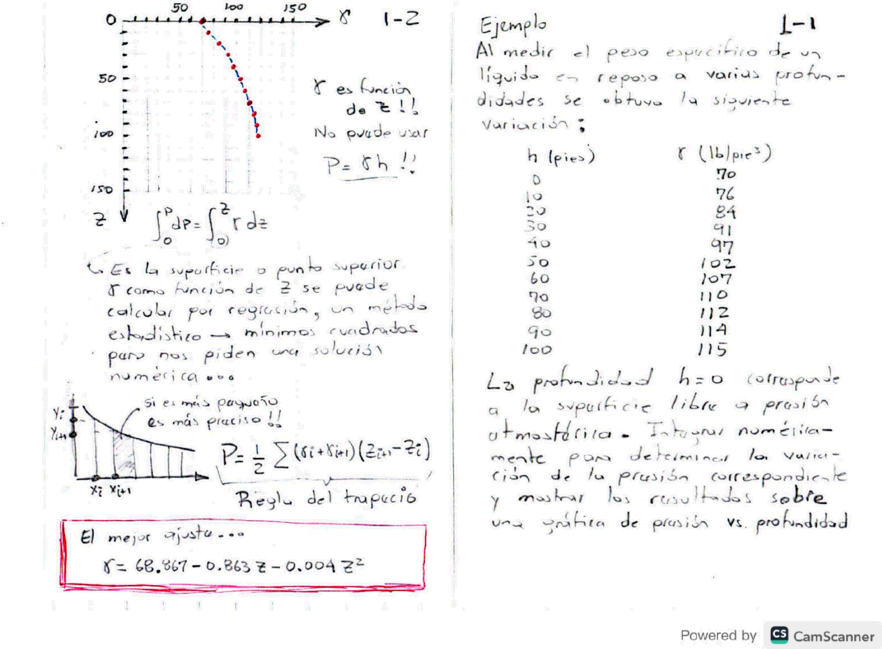 50 100 150
0 γ 1-2
50
100
150
Z
γ es función
de Z !!
No puede usar
P = γh !!
∫₀ᴾ dP = ∫₀ᶻ γ dz
Es la superficie o punto superior.
γ como función de Z se puede
calcular por regresión, un método
estadístico → mínimos cuadrados
pero nos piden una solución
numérica ...
si es más pequeño
es más preciso !!
Yi
Yi+1
Xi Xi+1
P = 1/2 Σ (γi + γi+1)(Zi+1 - Zi)
Regla del trapecio
El mejor ajuste...
γ = 68.867 - 0.863 Z - 0.004 Z²
Ejemplo 1-1
Al medir el peso específico de un
líquido en reposo a varias profun-
didades se obtuvo la siguiente
variación:
h (pies) γ (lb/pie³)
0 70
10 76
20 84
30 91
40 97
50 102
60 107
70 110
80 112
90 114
100 115
La profundidad h=0 corresponde
a la superficie libre a presión
atmosférica. Integrar numérica-
mente para determinar la varia-
ción de la presión correspondiente
y mostrar los resultados sobre
una gráfica de presión vs. profundidad
Powered by CS CamScanner